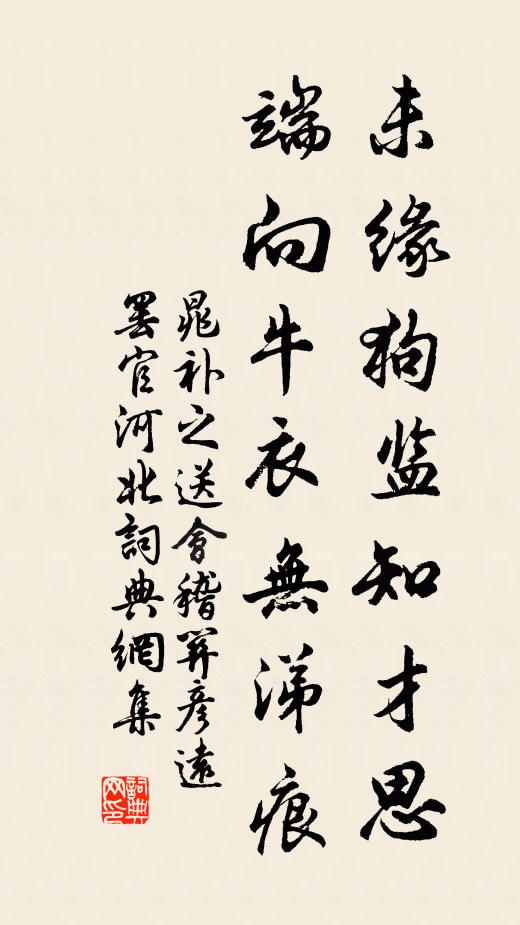 未缘狗监知才思
端向牛衣無涕痕
晁补之送會稽羿彦遠
罢官河北詞典網集
詞典
网印